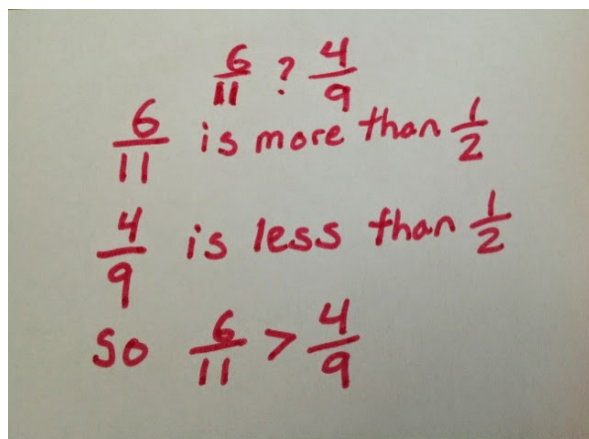 6/11 ? 4/9
6/11 is more than 1/2
4/9 is less than 1/2
So 6/11 > 4/9